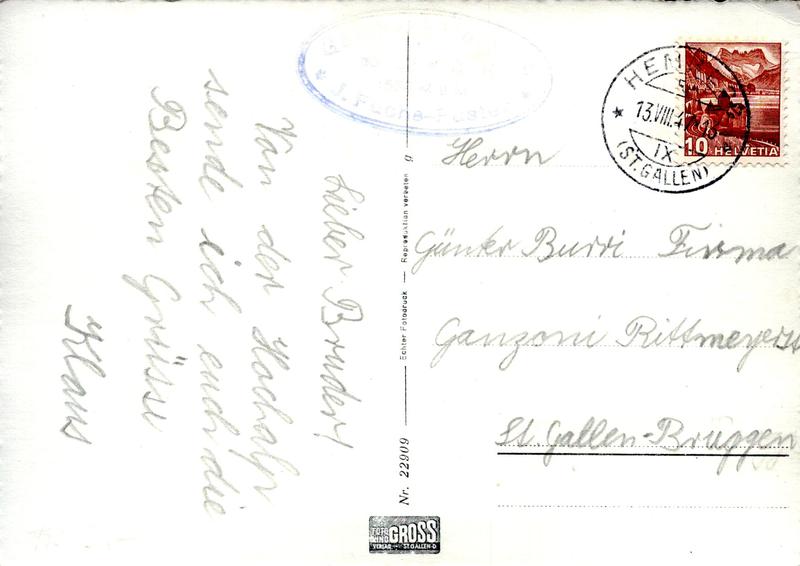 Lieber Bruder!
Von der Hochalp
sende ich euch die
Besten Grüsse
Klaus
Nr. 22909
Echter Fotodruck — Reproduktion verboten
GROSS
VERLAG ST. GALLEN-O
HEN
13.VIII.4
IX
(ST. GALLEN)
10 HELVETIA
Herrn
Günter Burri Firma
Ganzoni Rittmeyerst
St. Gallen-Bruggen